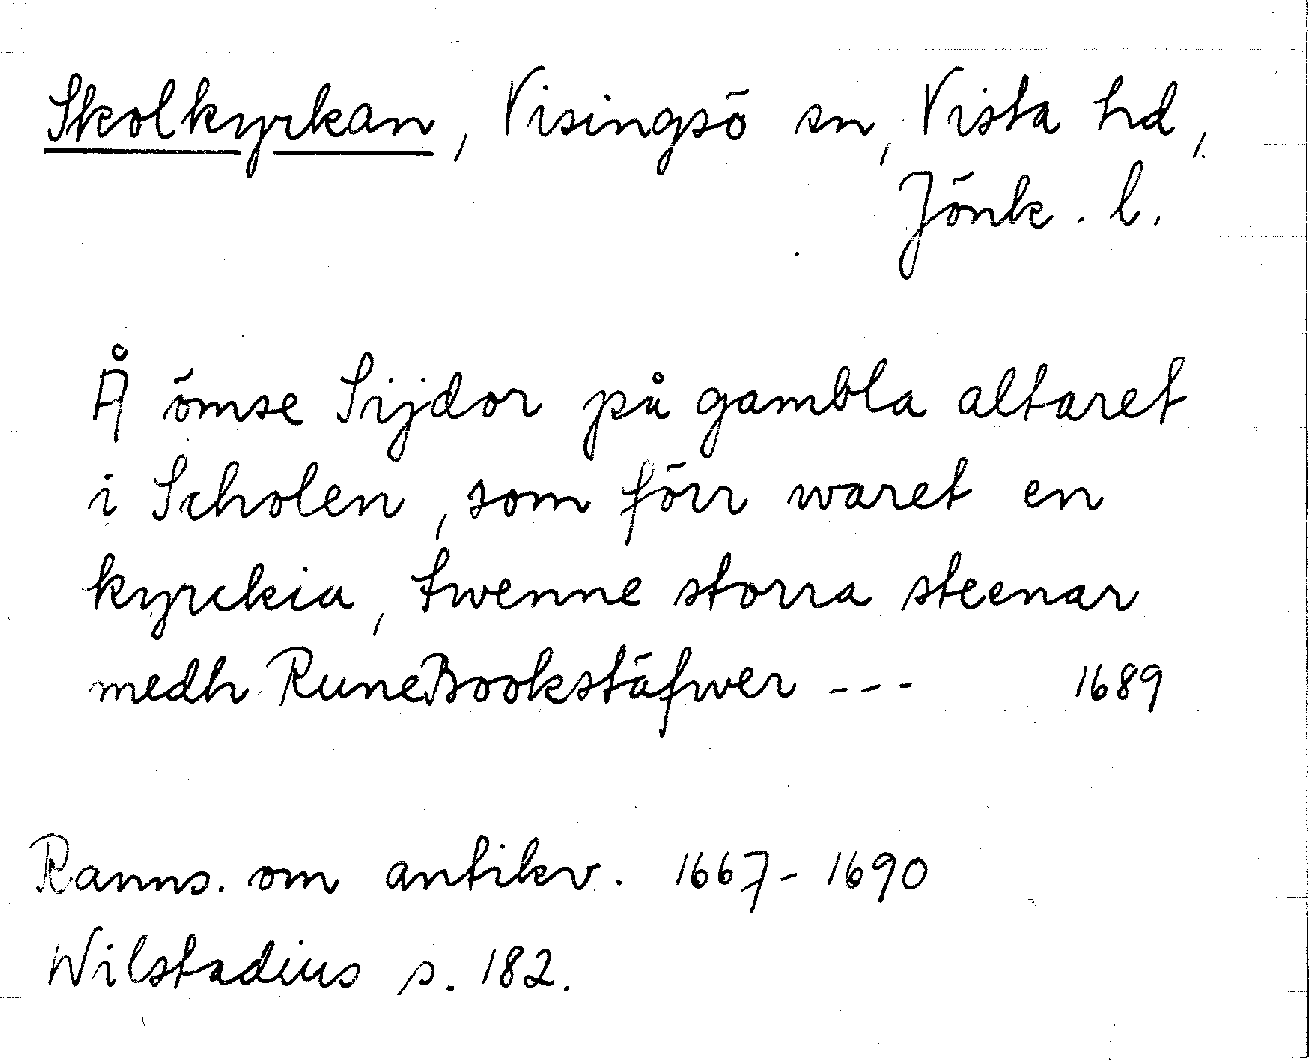 Skolkyrkan, Visingsö sn, Vista hd,
Jönk. l.
Å ömse Sijdor på gambla altaret
i Scholen, som förr waret en
kyrckia, twenne storra steenar
medh RuneBookstäfwer --- 1689
Ranns. om antikv. 1667-1690
Wilstadius s. 182.